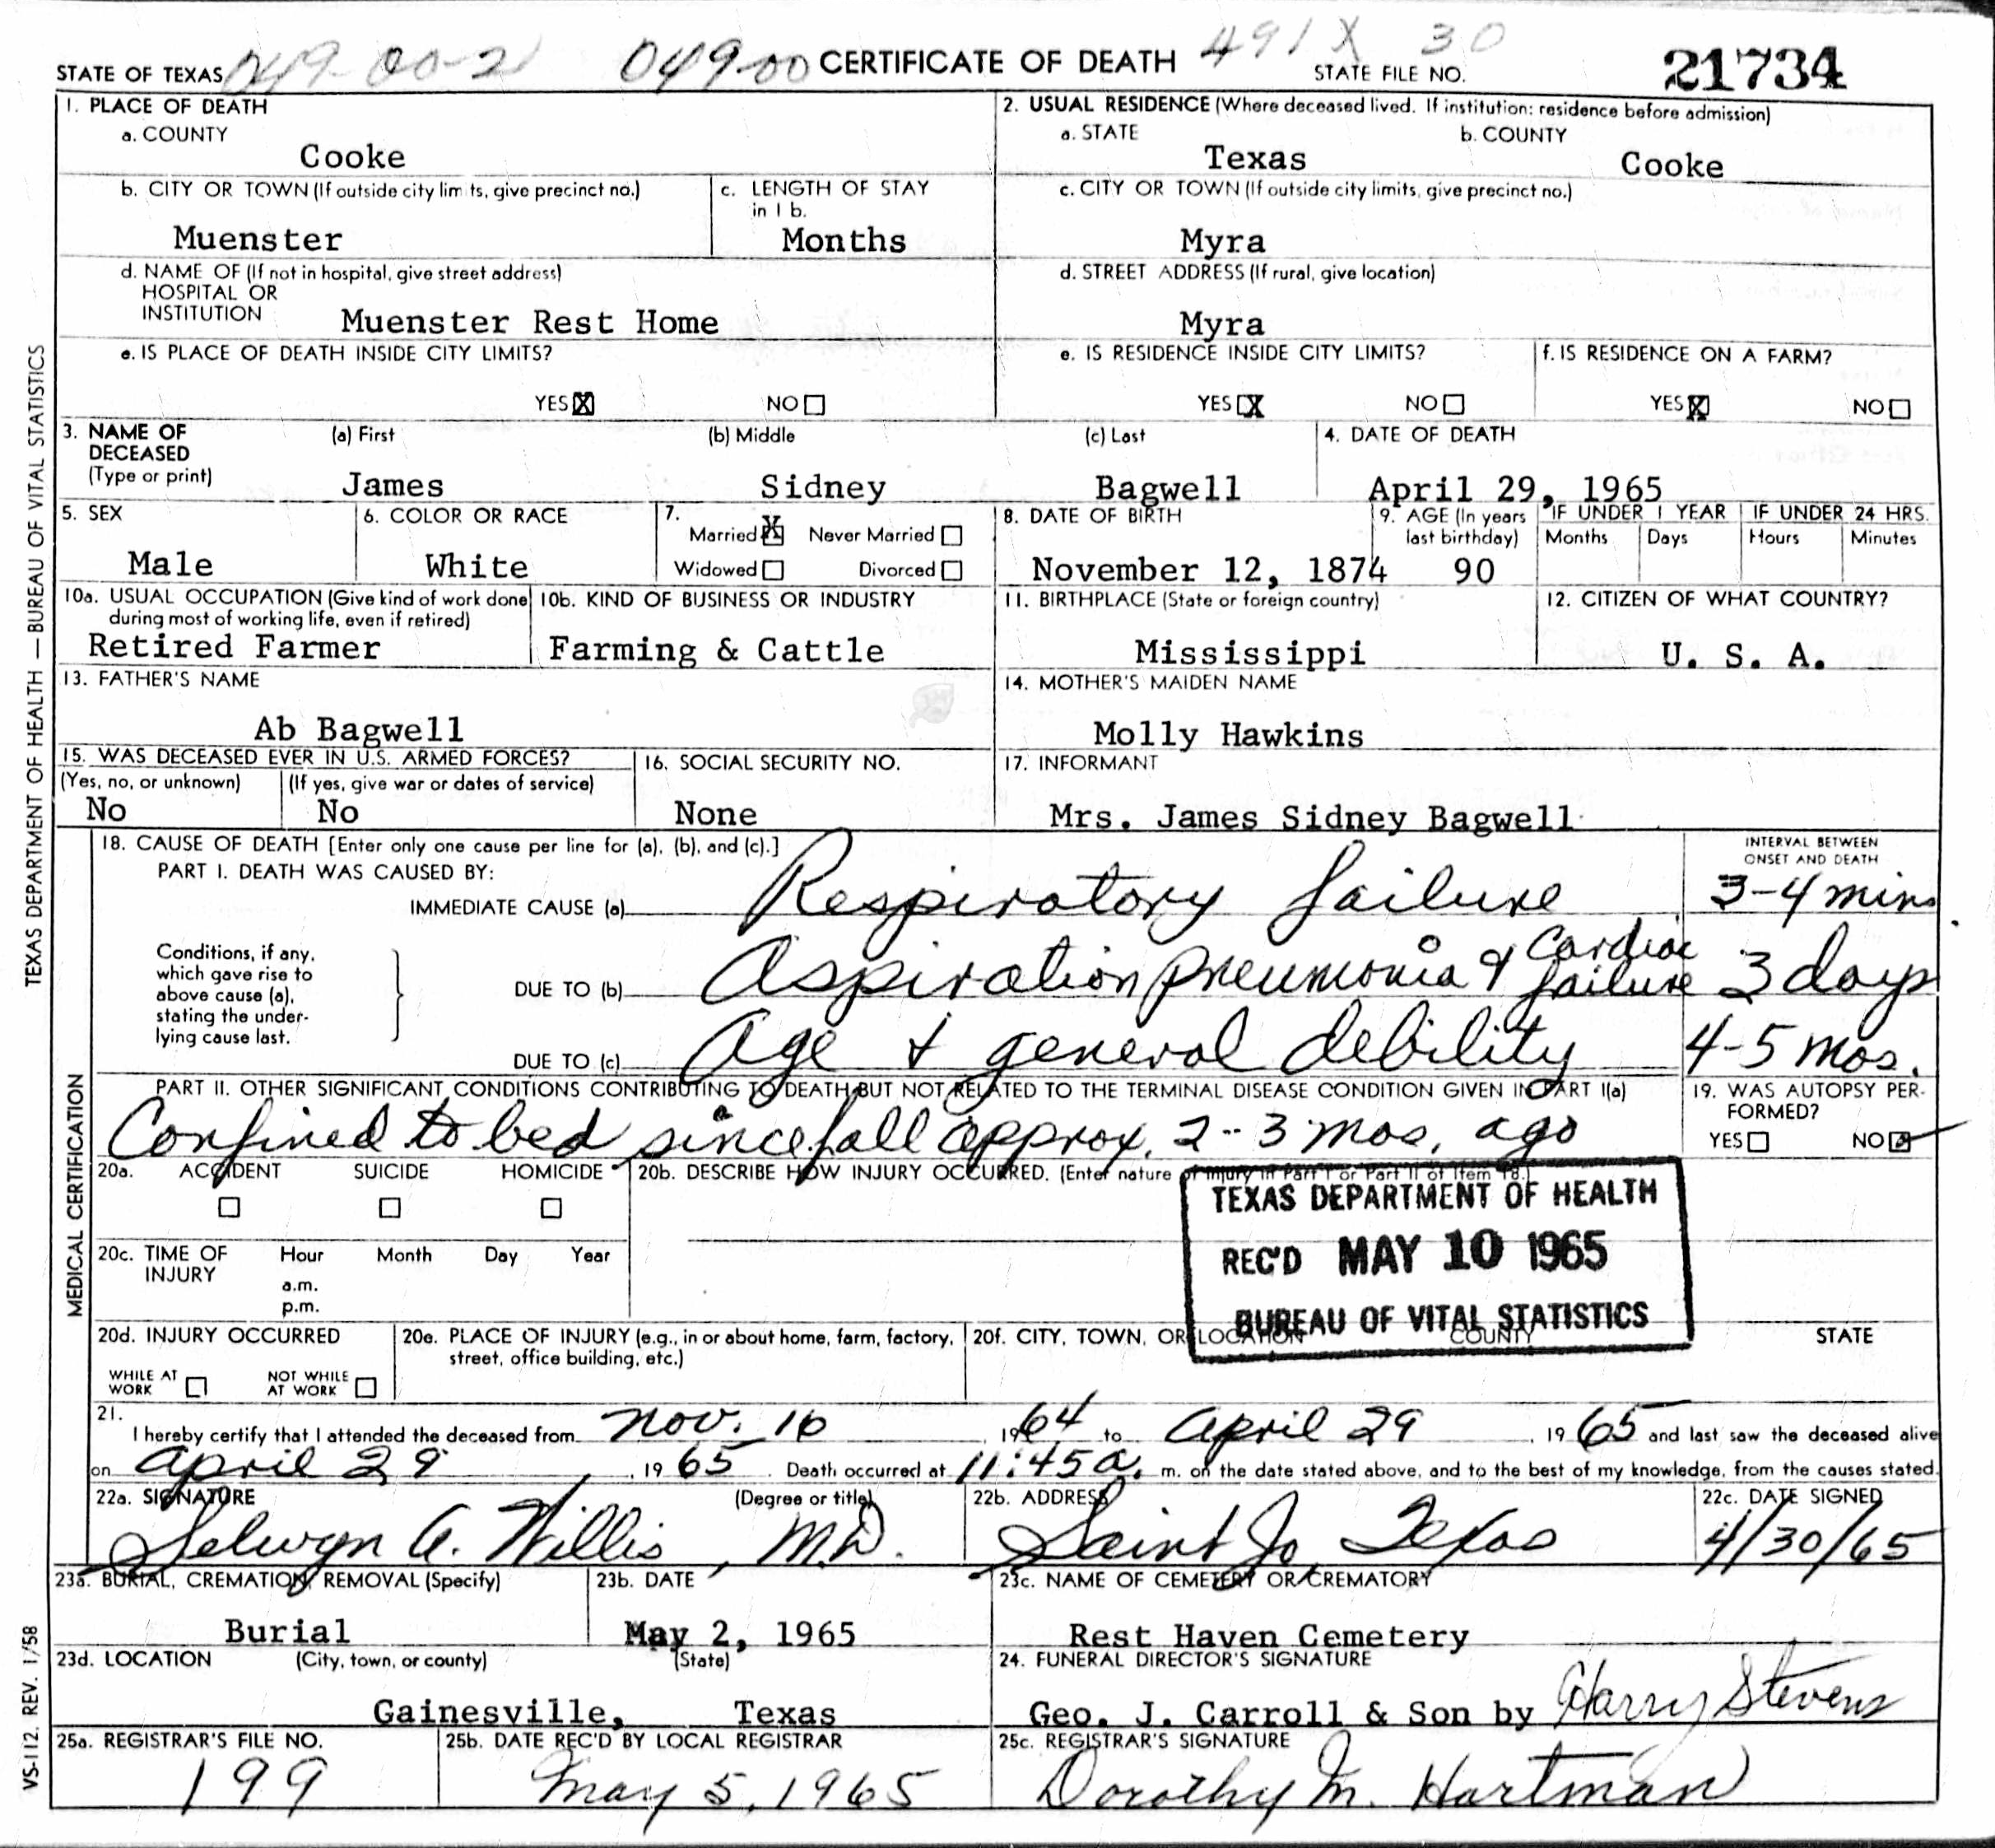 049-00-2 049-00 CERTIFICATE OF DEATH 491X 30
STATE OF TEXAS STATE FILE NO. 21734
1. PLACE OF DEATH
a. COUNTY
Cooke
2. USUAL RESIDENCE (Where deceased lived. If institution: residence before admission)
a. STATE b. COUNTY
Texas Cooke
b. CITY OR TOWN (If outside city limits, give precinct no.) c. LENGTH OF STAY in 1 b.
Muenster Months
c. CITY OR TOWN (If outside city limits, give precinct no.)
Myra
d. NAME OF (If not in hospital, give street address)
HOSPITAL OR
INSTITUTION Muenster Rest Home
d. STREET ADDRESS (If rural, give location)
Myra
e. IS PLACE OF DEATH INSIDE CITY LIMITS?
YES X NO
e. IS RESIDENCE INSIDE CITY LIMITS? f. IS RESIDENCE ON A FARM?
YES X NO YES X NO
3. NAME OF DECEASED (Type or print) (a) First (b) Middle (c) Last 4. DATE OF DEATH
James Sidney Bagwell April 29, 1965
5. SEX 6. COLOR OR RACE 7. Married X Never Married Widowed Divorced
Male White
8. DATE OF BIRTH 9. AGE (In years last birthday) IF UNDER 1 YEAR IF UNDER 24 HRS.
Months Days Hours Minutes
November 12, 1874 90
10a. USUAL OCCUPATION (Give kind of work done during most of working life, even if retired) 10b. KIND OF BUSINESS OR INDUSTRY
Retired Farmer Farming & Cattle
11. BIRTHPLACE (State or foreign country) 12. CITIZEN OF WHAT COUNTRY?
Mississippi U. S. A.
13. FATHER'S NAME 14. MOTHER'S MAIDEN NAME
Ab Bagwell Molly Hawkins
15. WAS DECEASED EVER IN U.S. ARMED FORCES? 16. SOCIAL SECURITY NO. 17. INFORMANT
(Yes, no, or unknown) (If yes, give war or dates of service)
No No None Mrs. James Sidney Bagwell
18. CAUSE OF DEATH [Enter only one cause per line for (a), (b), and (c).] INTERVAL BETWEEN ONSET AND DEATH
PART I. DEATH WAS CAUSED BY:
IMMEDIATE CAUSE (a) Respiratory failure 3-4 mins
Conditions, if any,
which gave rise to
above cause (a),
stating the under-
lying cause last.
DUE TO (b) Aspiration pneumonia & Cardiac failure 3 days
DUE TO (c) Age & general debility 4-5 mos.
PART II. OTHER SIGNIFICANT CONDITIONS CONTRIBUTING TO DEATH BUT NOT RELATED TO THE TERMINAL DISEASE CONDITION GIVEN IN PART I(a)
Confined to bed since fall approx. 2-3 mos. ago
19. WAS AUTOPSY PER-
FORMED?
YES NO
20a. ACCIDENT SUICIDE HOMICIDE
20b. DESCRIBE HOW INJURY OCCURRED. (Enter nature of injury in Part I or Part II of Item 18.)
TEXAS DEPARTMENT OF HEALTH
REC'D MAY 10 1965
BUREAU OF VITAL STATISTICS
20c. TIME OF INJURY Hour Month Day Year
a.m.
p.m.
20d. INJURY OCCURRED 20e. PLACE OF INJURY (e.g., in or about home, farm, factory, street, office building, etc.) 20f. CITY, TOWN, OR LOCATION COUNTY STATE
WHILE AT WORK NOT WHILE AT WORK
21.
I hereby certify that I attended the deceased from Nov. 16, 1964 to April 29, 1965 and last saw the deceased alive
on April 29, 1965. Death occurred at 11:45 a. m. on the date stated above, and to the best of my knowledge, from the causes stated.
22a. SIGNATURE (Degree or title) 22b. ADDRESS 22c. DATE SIGNED
Selwyn A. Willis, M.D. Saint Jo, Texas 4/30/65
23a. BURIAL, CREMATION, REMOVAL (Specify) 23b. DATE 23c. NAME OF CEMETERY OR CREMATORY
Burial May 2, 1965 Rest Haven Cemetery
23d. LOCATION (City, town, or county) (State) 24. FUNERAL DIRECTOR'S SIGNATURE
Gainesville, Texas Geo. J. Carroll & Son by Harry Stevens
25a. REGISTRAR'S FILE NO. 25b. DATE REC'D BY LOCAL REGISTRAR 25c. REGISTRAR'S SIGNATURE
199 May 5, 1965 Dorothy M. Hartman
TEXAS DEPARTMENT OF HEALTH — BUREAU OF VITAL STATISTICS
MEDICAL CERTIFICATION
VS-112. REV. 1/58